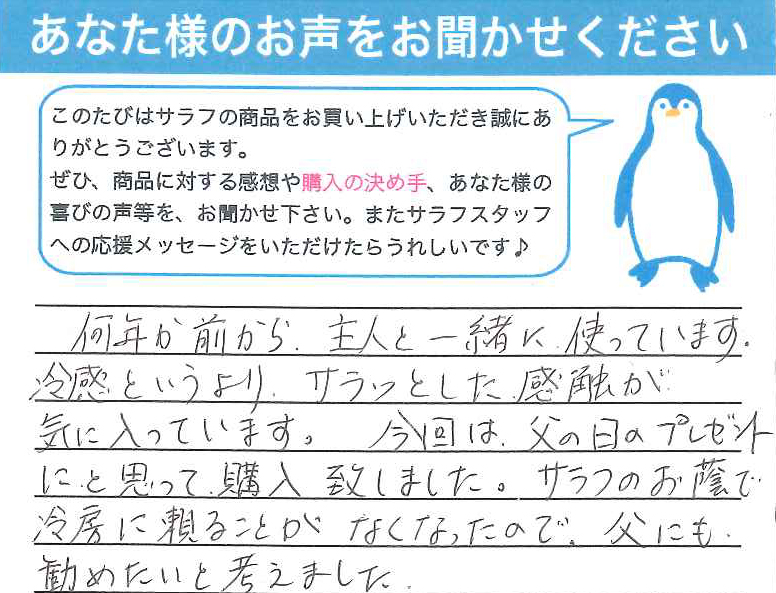 あなた様のお声をお聞かせください
このたびはサラフの商品をお買い上げいただき誠にあ
りがとうございます。
ぜひ、商品に対する感想や購入の決め手、あなた様の
喜びの声等を、お聞かせ下さい。またサラフスタッフ
への応援メッセージをいただけたらうれしいです♪
何年か前から、主人と一緒に、使っています。
冷感というより、サラッとした感触が
気に入っています。 今回は、父の日のプレゼント
にと思って、購入致しました。サラフのお蔭で
冷房に頼ることがなくなったので、父にも、
勧めたいと考えました。